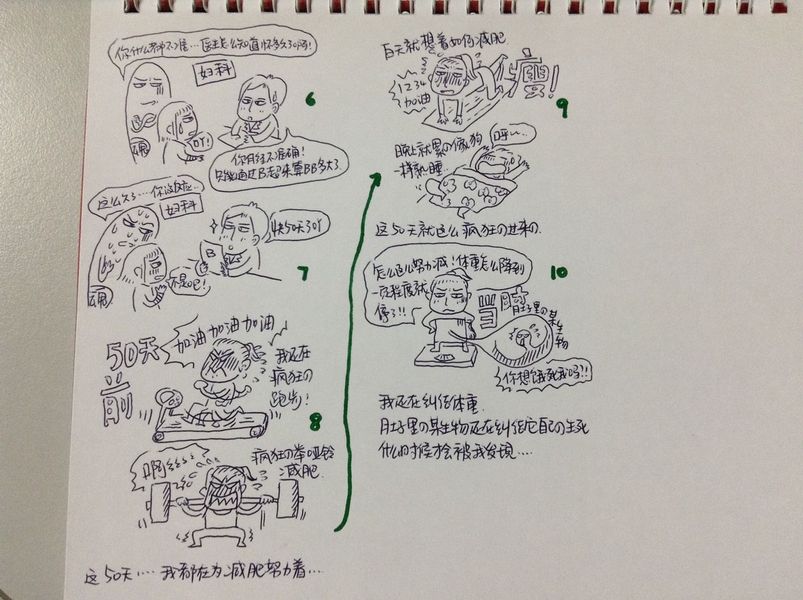 你什么都不准…医生怎么知道怀多久了啊!
妇科
6
哦
吖!
你月经不准确!
只能通过B超来算BB多大了
这么久了…你没反应…
妇科
快50天了吖
7
不是吧!
50天
前
加油加油加油
我还在
疯狂の
跑步!
8
啊
疯狂の举哑铃
减肥.
这50天…..我都在为减肥努力着…
白天就想着如何减肥
1234
加油
瘦!
9
晚上就累の像狗
一样熟睡
呼~~
这50天就这么疯狂の过来の.
10
怎么这么努力减!体重怎么降到
一定程度就
停了!!
当时
肚子里の某生物
你想饿死我吗?!!
我还在纠结体重.
肚子里の某生物还在纠结它自己の生死
什么时候才会被我发现….